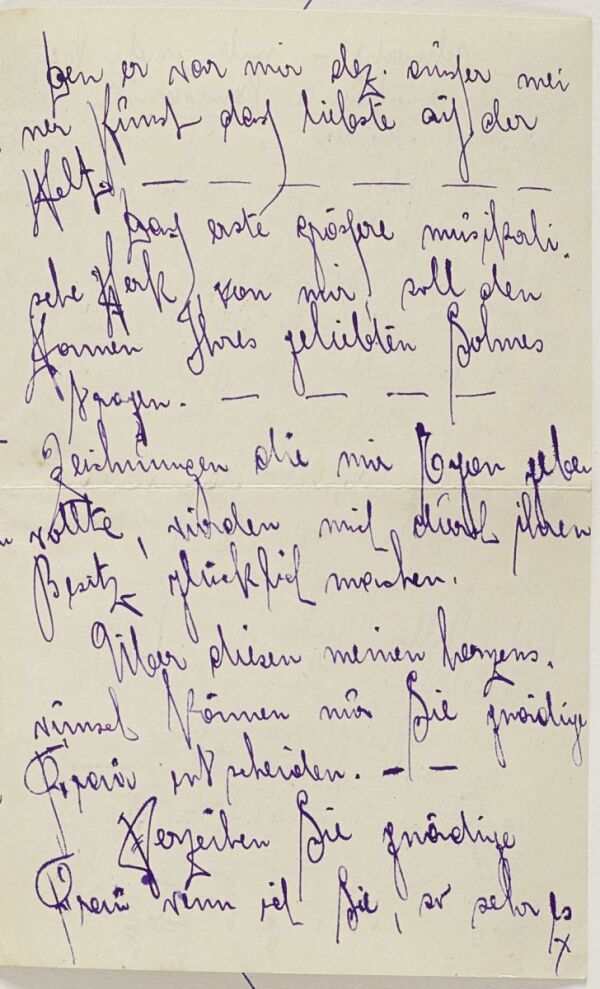 ben er war mir der ausser mei
ner Kunst das liebste auf der
Welt. — — — — — —
Das erste grössere musikali.
sche Werk, von mir, soll den
Namen Ihres geliebten Sohnes
tragen. — — — —
Zeichnungen die mir Egon geben
wollte, würden mich durch ihren
Besitz glücklich machen.
Über diesen meinen herzens.
wunsch können nur Sie gnädige
Frau entscheiden. — —
Verzeihen Sie gnädige
Frau wenn ich Sie, so sehr